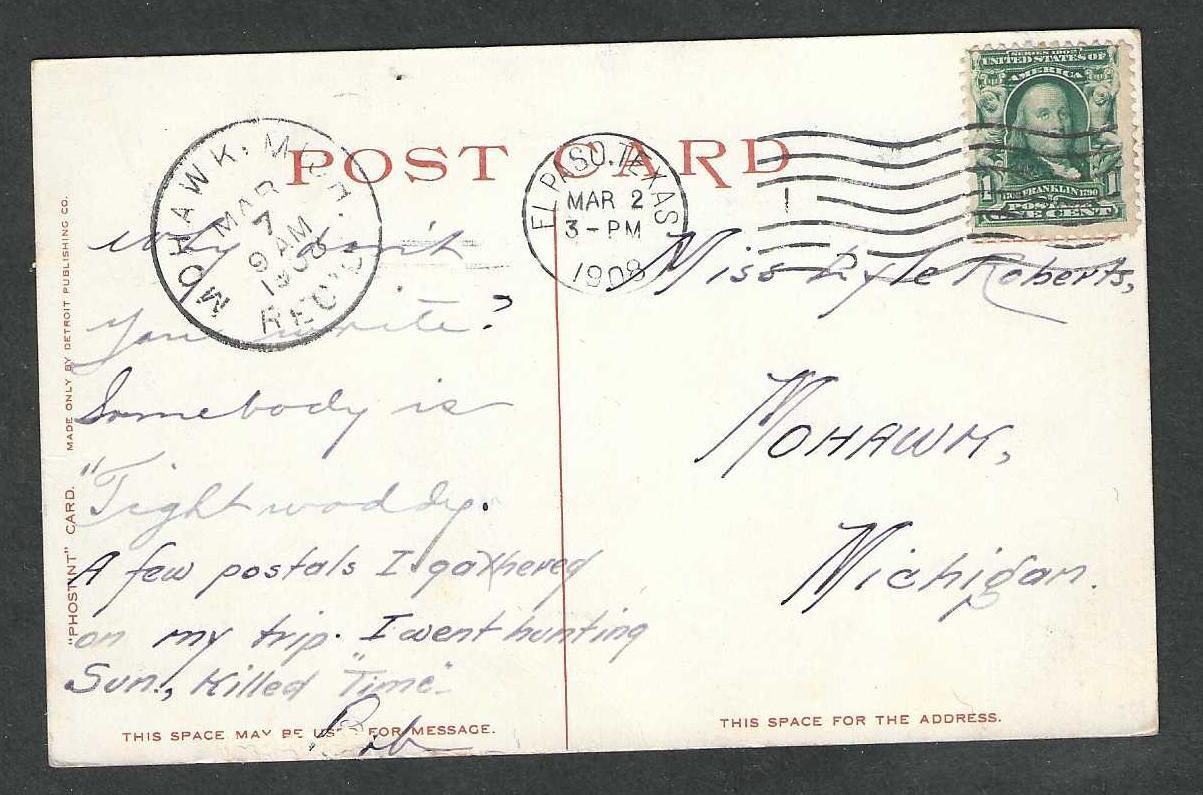 POST CARD
MOHAWK, MICH.
MAR
7
9 AM
1908
REC'D.
EL PASO, TEXAS
MAR 2
3-PM
1908
SERIES 1902
UNITED STATES OF
AMERICA
FRANKLIN 1790
POSTAGE
ONE CENT
1 1
Why don't
you write?
Somebody is
"Tight waddy.
A few postals I gathered
on my trip. I went hunting
Sun., Killed "Time"
Bob
Miss Lyle Roberts,
MOHAWK,
Michigan.
"PHOSTINT" CARD. MADE ONLY BY DETROIT PUBLISHING CO.
THIS SPACE MAY BE USED FOR MESSAGE.
THIS SPACE FOR THE ADDRESS.